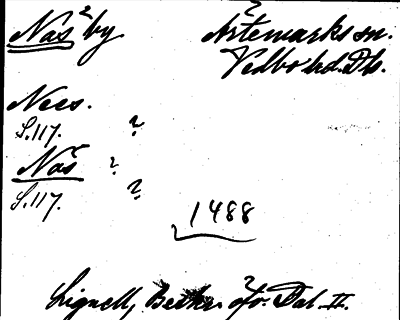 Näs by Ärtemarks sn.
Vedbo hd. Dls.
Nees.
S.117. ?
Näs ?
S.117. ?
1488
Lignell, Beskr. öfv. Dal. II.